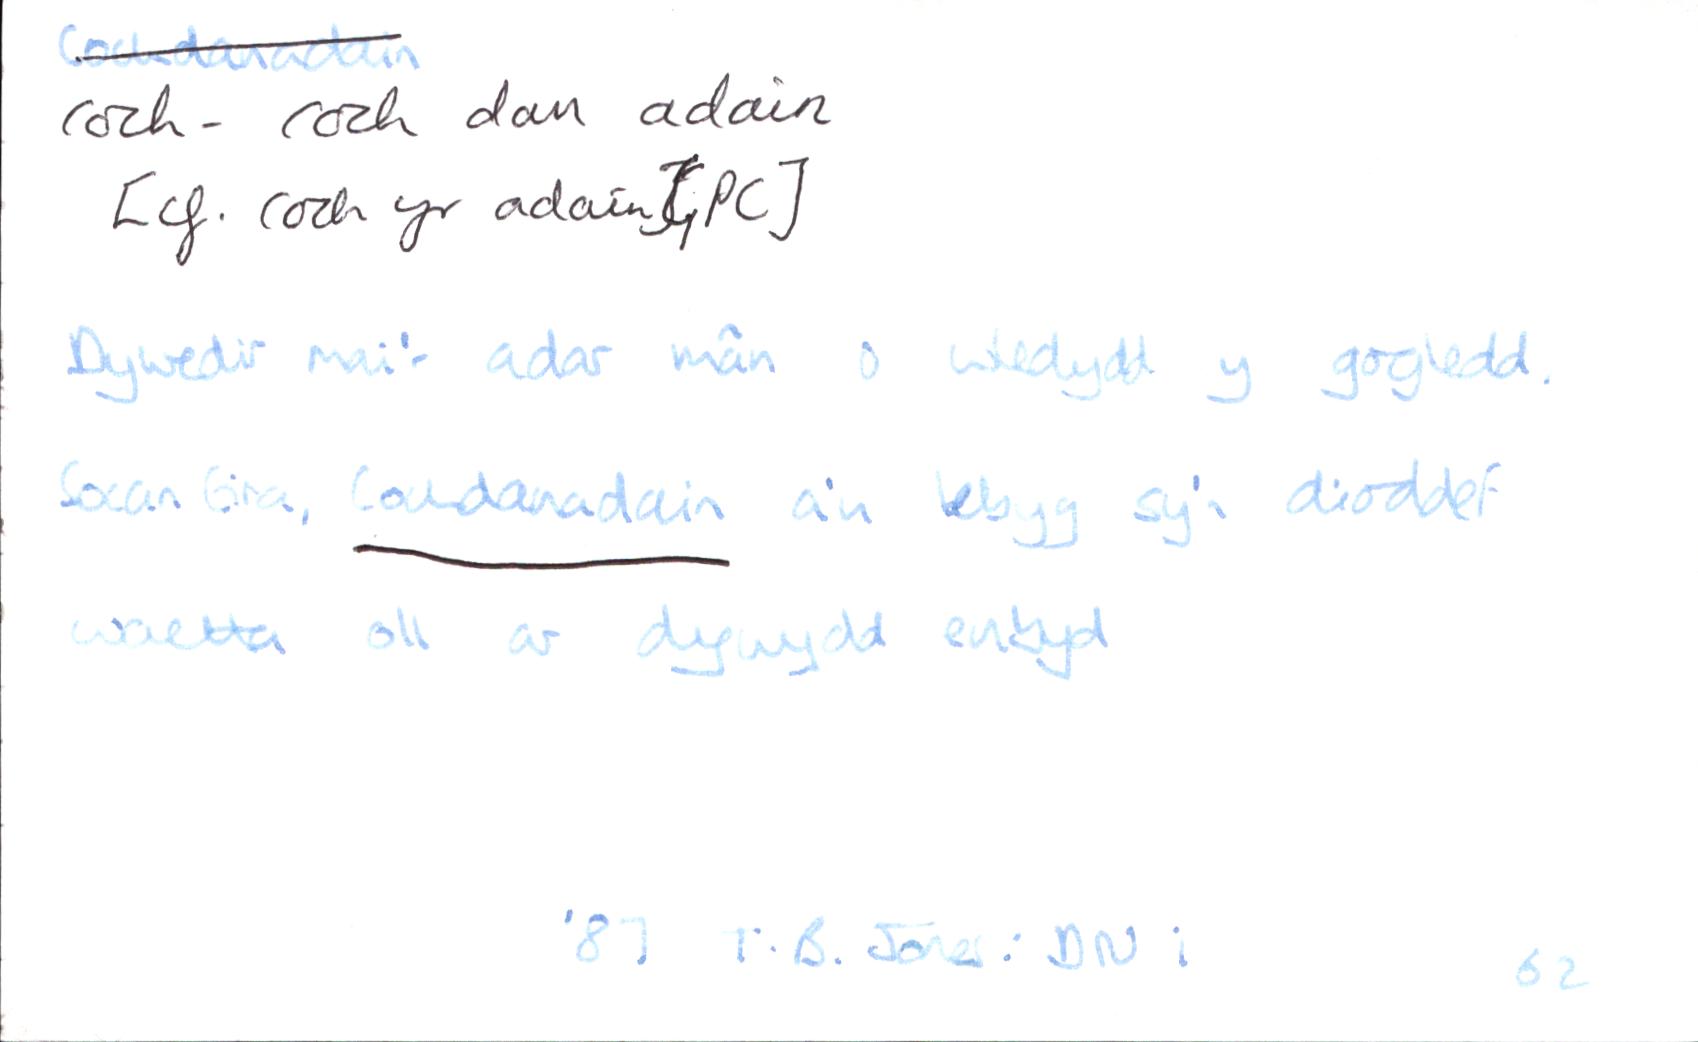 Cochdanadain
coch - coch dan adain
[cf. coch yr adain GPC]
Dywedir mai'r adar mân o wledydd y gogledd.
Socan Eira, Cochdanadain a'u tebyg sy'n dioddef
waetha oll ar dywydd enbyd
'87 T. B. Jones: DN i 62